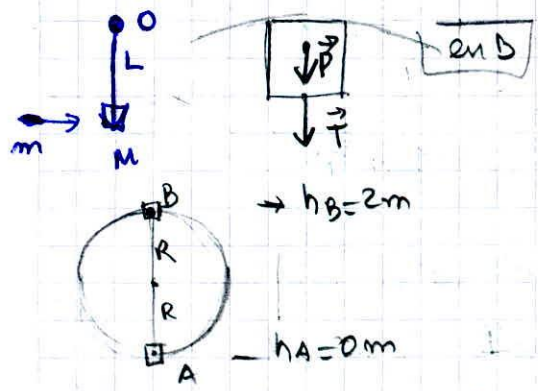 O
L
m
M
P
T
en B
B
→ hB=2m
R
R
hA=0m
A